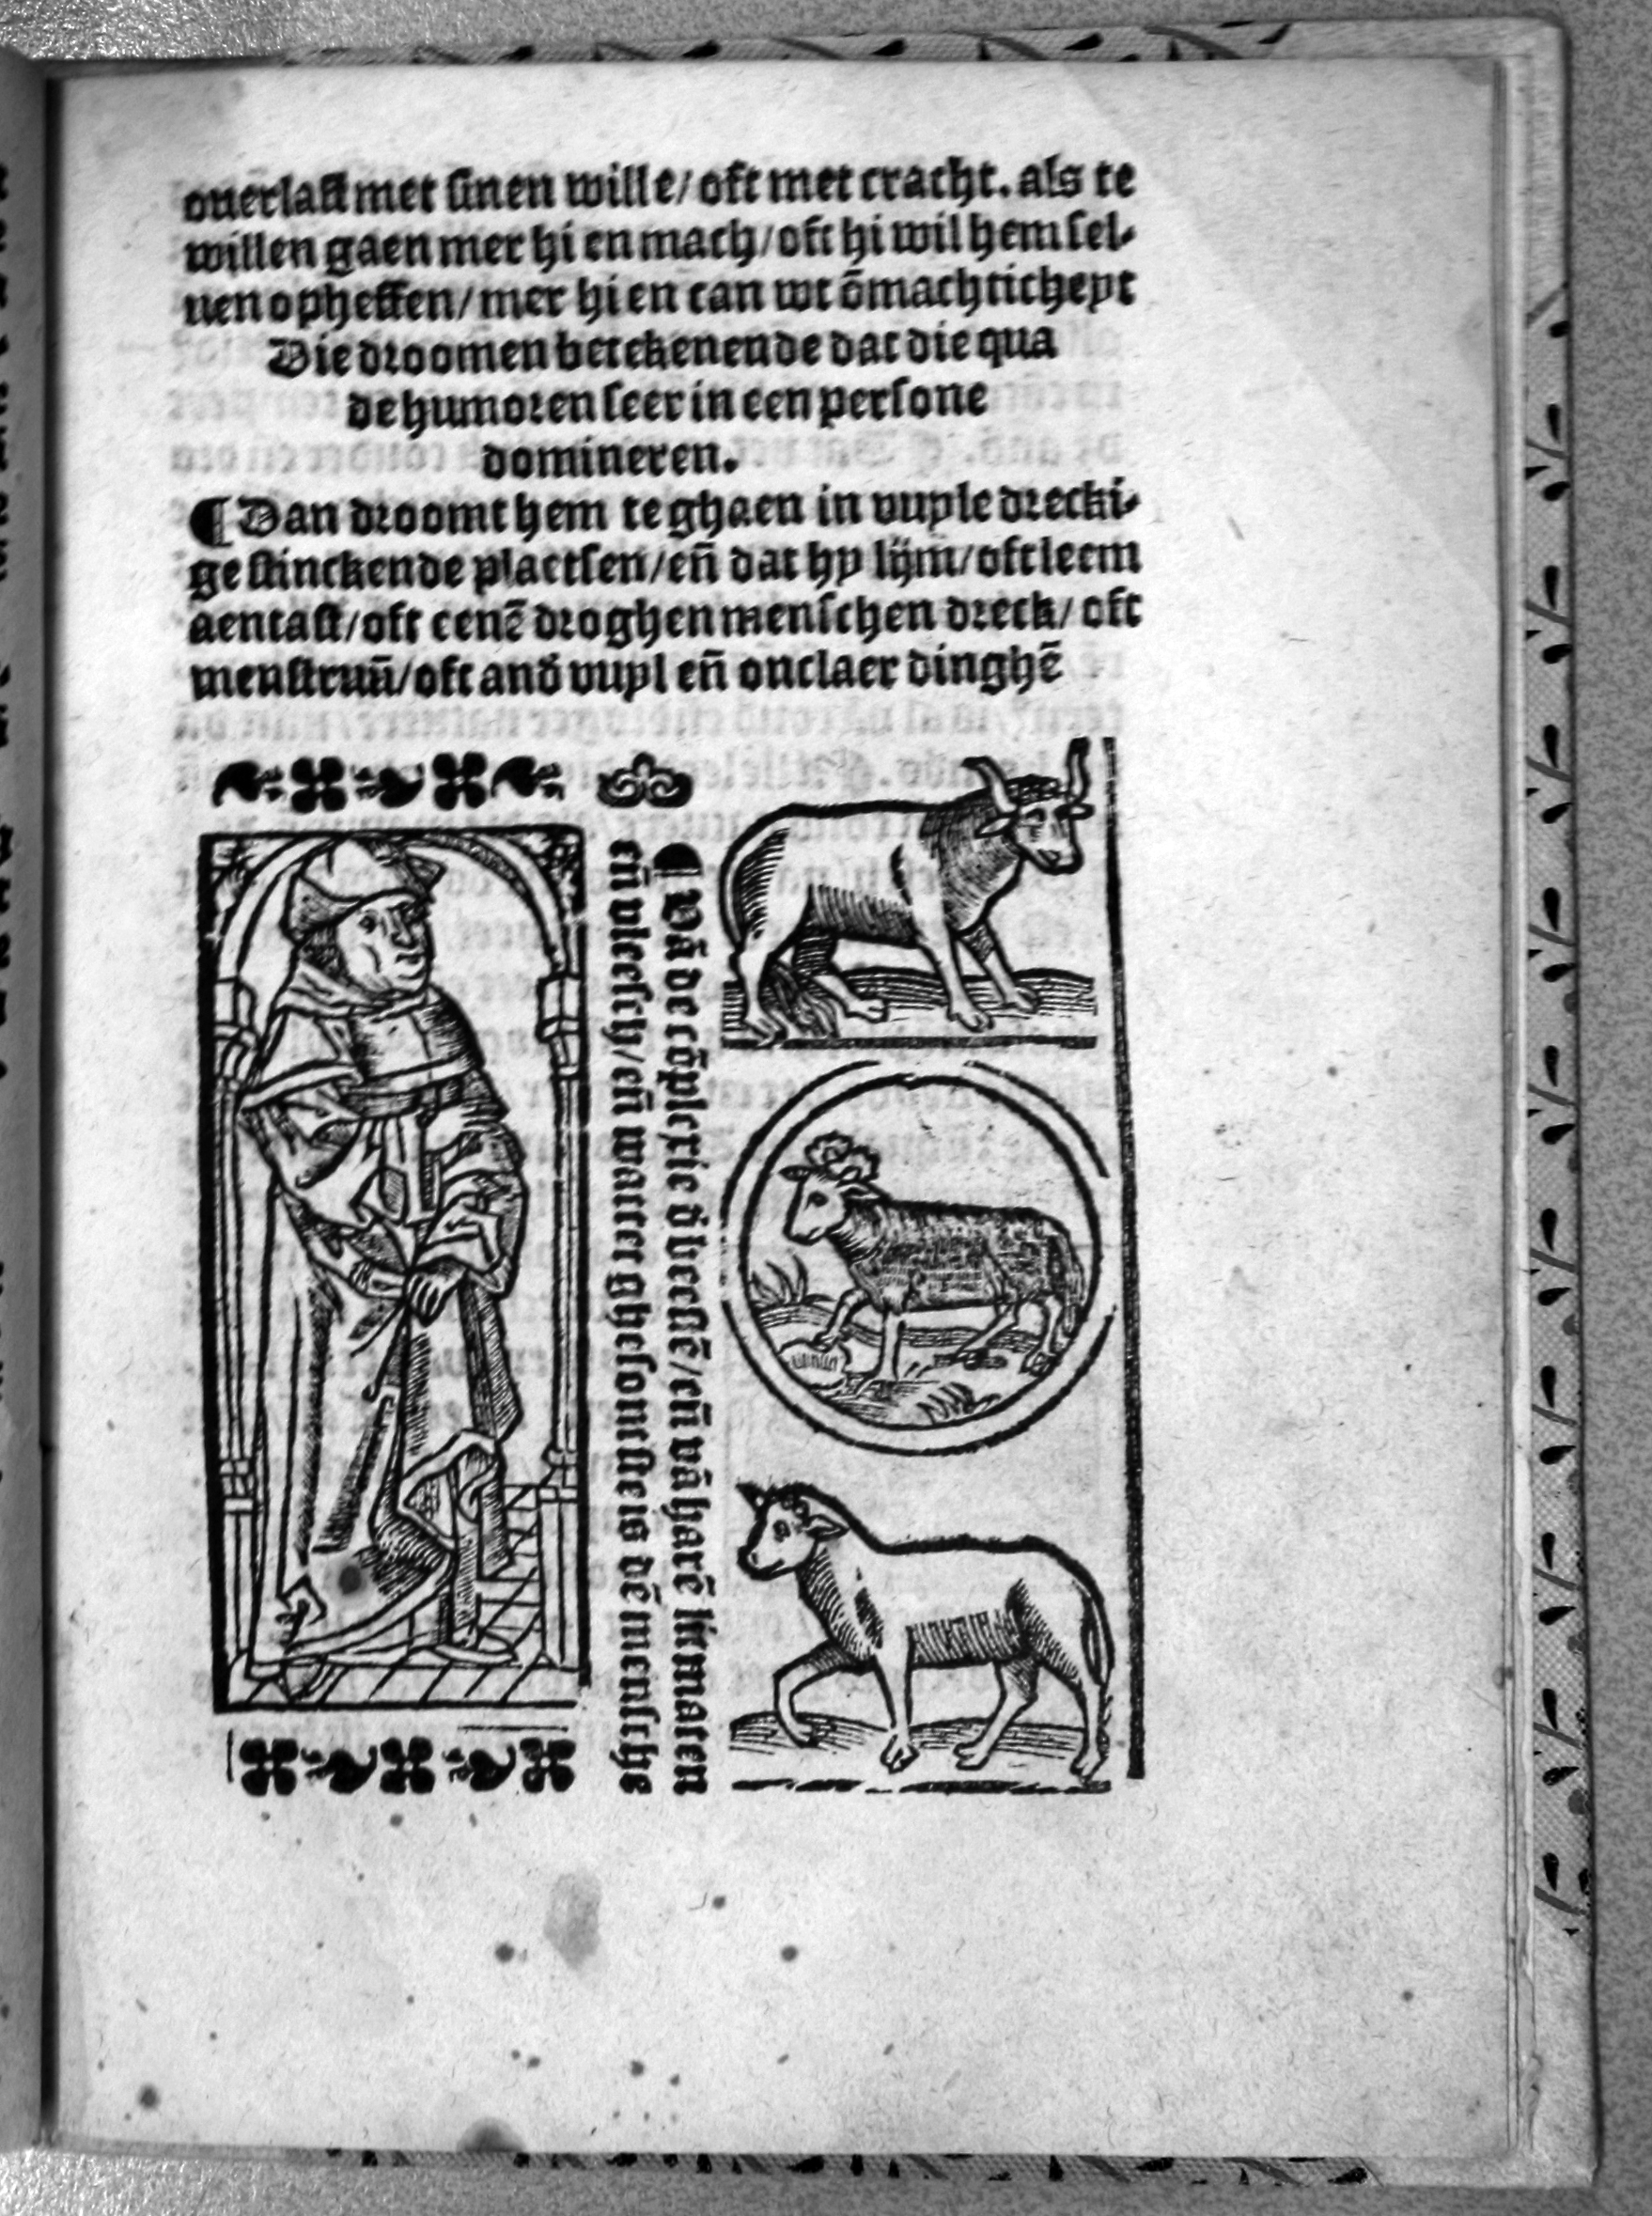 ouerlast met sinen wille/ oft met cracht. als te
willen gaen mer hi en mach/ oft hi wil hem sel-
uen opheffen/ mer hi en can wt ōmachticheyt
Die droomen betekenende dat die qua
de humoren seer in een persone
domineren.
¶ Dan droomt hem te ghaen in vuyle drecki-
ge stinckende plaetsen/ eñ dat hy lijm/ oft leem
aentast/ oft eenē droghen menschen dreck/ oft
menstruū/ oft anđ vuyl eñ onclaer dinghē
¶ Vā de cōplexie đ beestē/ eñ vā harē litmaten
eñ vleesch/ eñ watter ghesontste is dē mensche